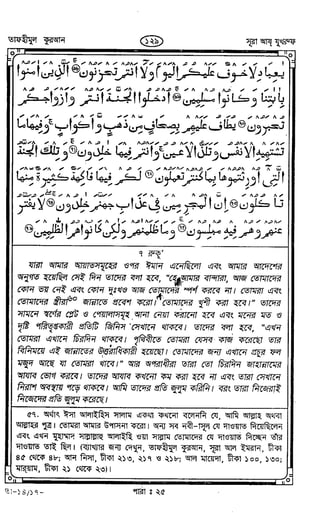 তাফহীমুল কুরআন
১২৯
সূরা আয্ যুখরুফ
يٰعِبَادِ لَا خَوْفٌ عَلَيْكُمُ الْيَوْمَ وَلَا أَنْتُمْ تَحْزَنُونَ ۝ الَّذِينَ اٰمَنُوا
بِاٰيٰتِنَا وَكَانُوا مُسْلِمِينَ ۝ ادْخُلُوا الْجَنَّةَ أَنْتُمْ وَأَزْوَاجُكُمْ
تُحْبَرُونَ ۝ يُطَافُ عَلَيْهِمْ بِصِحَافٍ مِنْ ذَهَبٍ وَأَكْوَابٍ ۚ وَفِيهَا مَا
تَشْتَهِيهِ الْأَنْفُسُ وَتَلَذُّ الْأَعْيُنُ ۚ وَأَنْتُمْ فِيهَا خٰلِدُونَ ۝ وَتِلْكَ الْجَنَّةُ
الَّتِي أُورِثْتُمُوهَا بِمَا كُنْتُمْ تَعْمَلُونَ ۝ لَكُمْ فِيهَا فَاكِهَةٌ كَثِيرَةٌ مِنْهَا
تَأْكُلُونَ ۝ إِنَّ الْمُجْرِمِينَ فِي عَذَابِ جَهَنَّمَ خٰلِدُونَ ۝ لَا يُفَتَّرُ
عَنْهُمْ وَهُمْ فِيهِ مُبْلِسُونَ ۝ وَمَا ظَلَمْنٰهُمْ وَلٰكِنْ كَانُوا هُمُ الظّٰلِمِينَ ۝
৭ রুকূ'
যারা আমার আয়াতসমূহের ওপর ঈমান এনেছিলো এবং আমার আদেশের
অনুগত হয়েছিল সেই দিন তাদের বলা হবে, "হে আমার বান্দারা, আজ তোমাদের
কোন ভয় নেই এবং কোন দুঃখও আজ তোমাদের স্পর্শ করবে না। তোমরা এবং
তোমাদের স্ত্রীরা জান্নাতে প্রবেশ করো। তোমাদের খুশী করা হবে।" তাদের
সামনে স্বর্ণের প্লেট ও পেয়ালাসমূহ আনা নেয়া করানো হবে এবং মনের মত ও
দৃষ্টি পরিতৃপ্তকারী প্রতিটি জিনিস সেখানে থাকবে। তাদের বলা হবে, "এখন
তোমরা এখানে চিরদিন থাকবে। পৃথিবীতে তোমরা যেসব কাজ করেছো তার
বিনিময়ে এই জান্নাতের উত্তরাধিকারী হয়েছো। তোমাদের জন্য এখানে প্রচুর ফল
মজুদ আছে যা তোমরা খাবে।" আর অপরাধীরা তারা তো চিরদিন জাহান্নামের
আযাব ভোগ করবে। তাদের আযাব কখনো কম করা হবে না এবং তারা সেখানে
নিরাশ অবস্থায় পড়ে থাকবে। আমি তাদের প্রতি জুলুম করিনি। বরং তারা নিজেরাই
নিজেদের প্রতি জুলুম করেছে।
৫৭. অর্থাৎ ঈসা আলাইহিস সালাম একথা কখনো বলেননি যে, আমি আল্লাহ অথবা
আল্লাহর পুত্র। তোমরা আমার উপাসনা করো। অন্য সব নবী-রসূল যে দাওয়াত দিয়েছিলেন
এবং এখন মুহাম্মাদ সাল্লাল্লাহু আলাইহি ওয়া সাল্লাম তোমাদের যে দাওয়াত দিচ্ছেন তাঁর
দাওয়াত তাই ছিল। (ব্যাখ্যার জন্য দেখুন, তাফহীমুল কুরআন, সূরা আল ইমরান, টীকা
৪৫ থেকে ৪৮; আন নিসা, টীকা ২১৩, ২১৭ ও ২১৮; আল মায়েদা, টীকা ১০০, ১৩০;
মারয়াম, টীকা ২১ থেকে ২৩।
পারা : ২৫